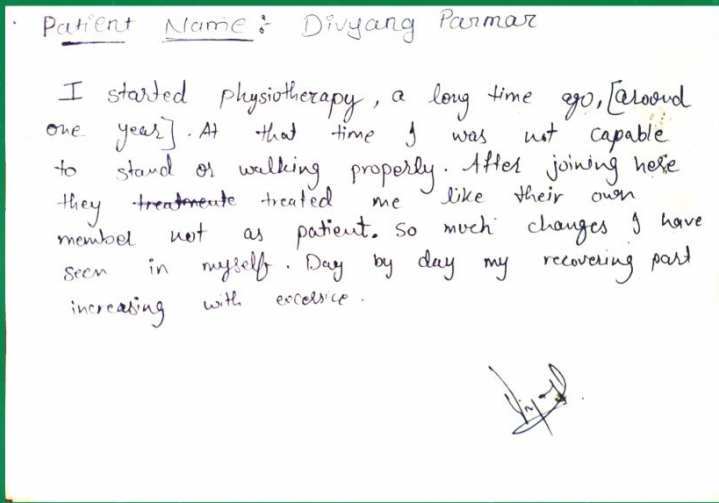 Patient Name :- Divyang Parmar
I started physiotherapy, a long time ago, [around
one year]. At that time I was not capable
to stand or walking properly. After joining here
they treatmente treated me like their own
member not as patient. So much changes I have
seen in myself. Day by day my recovering part
increasing with excersice.